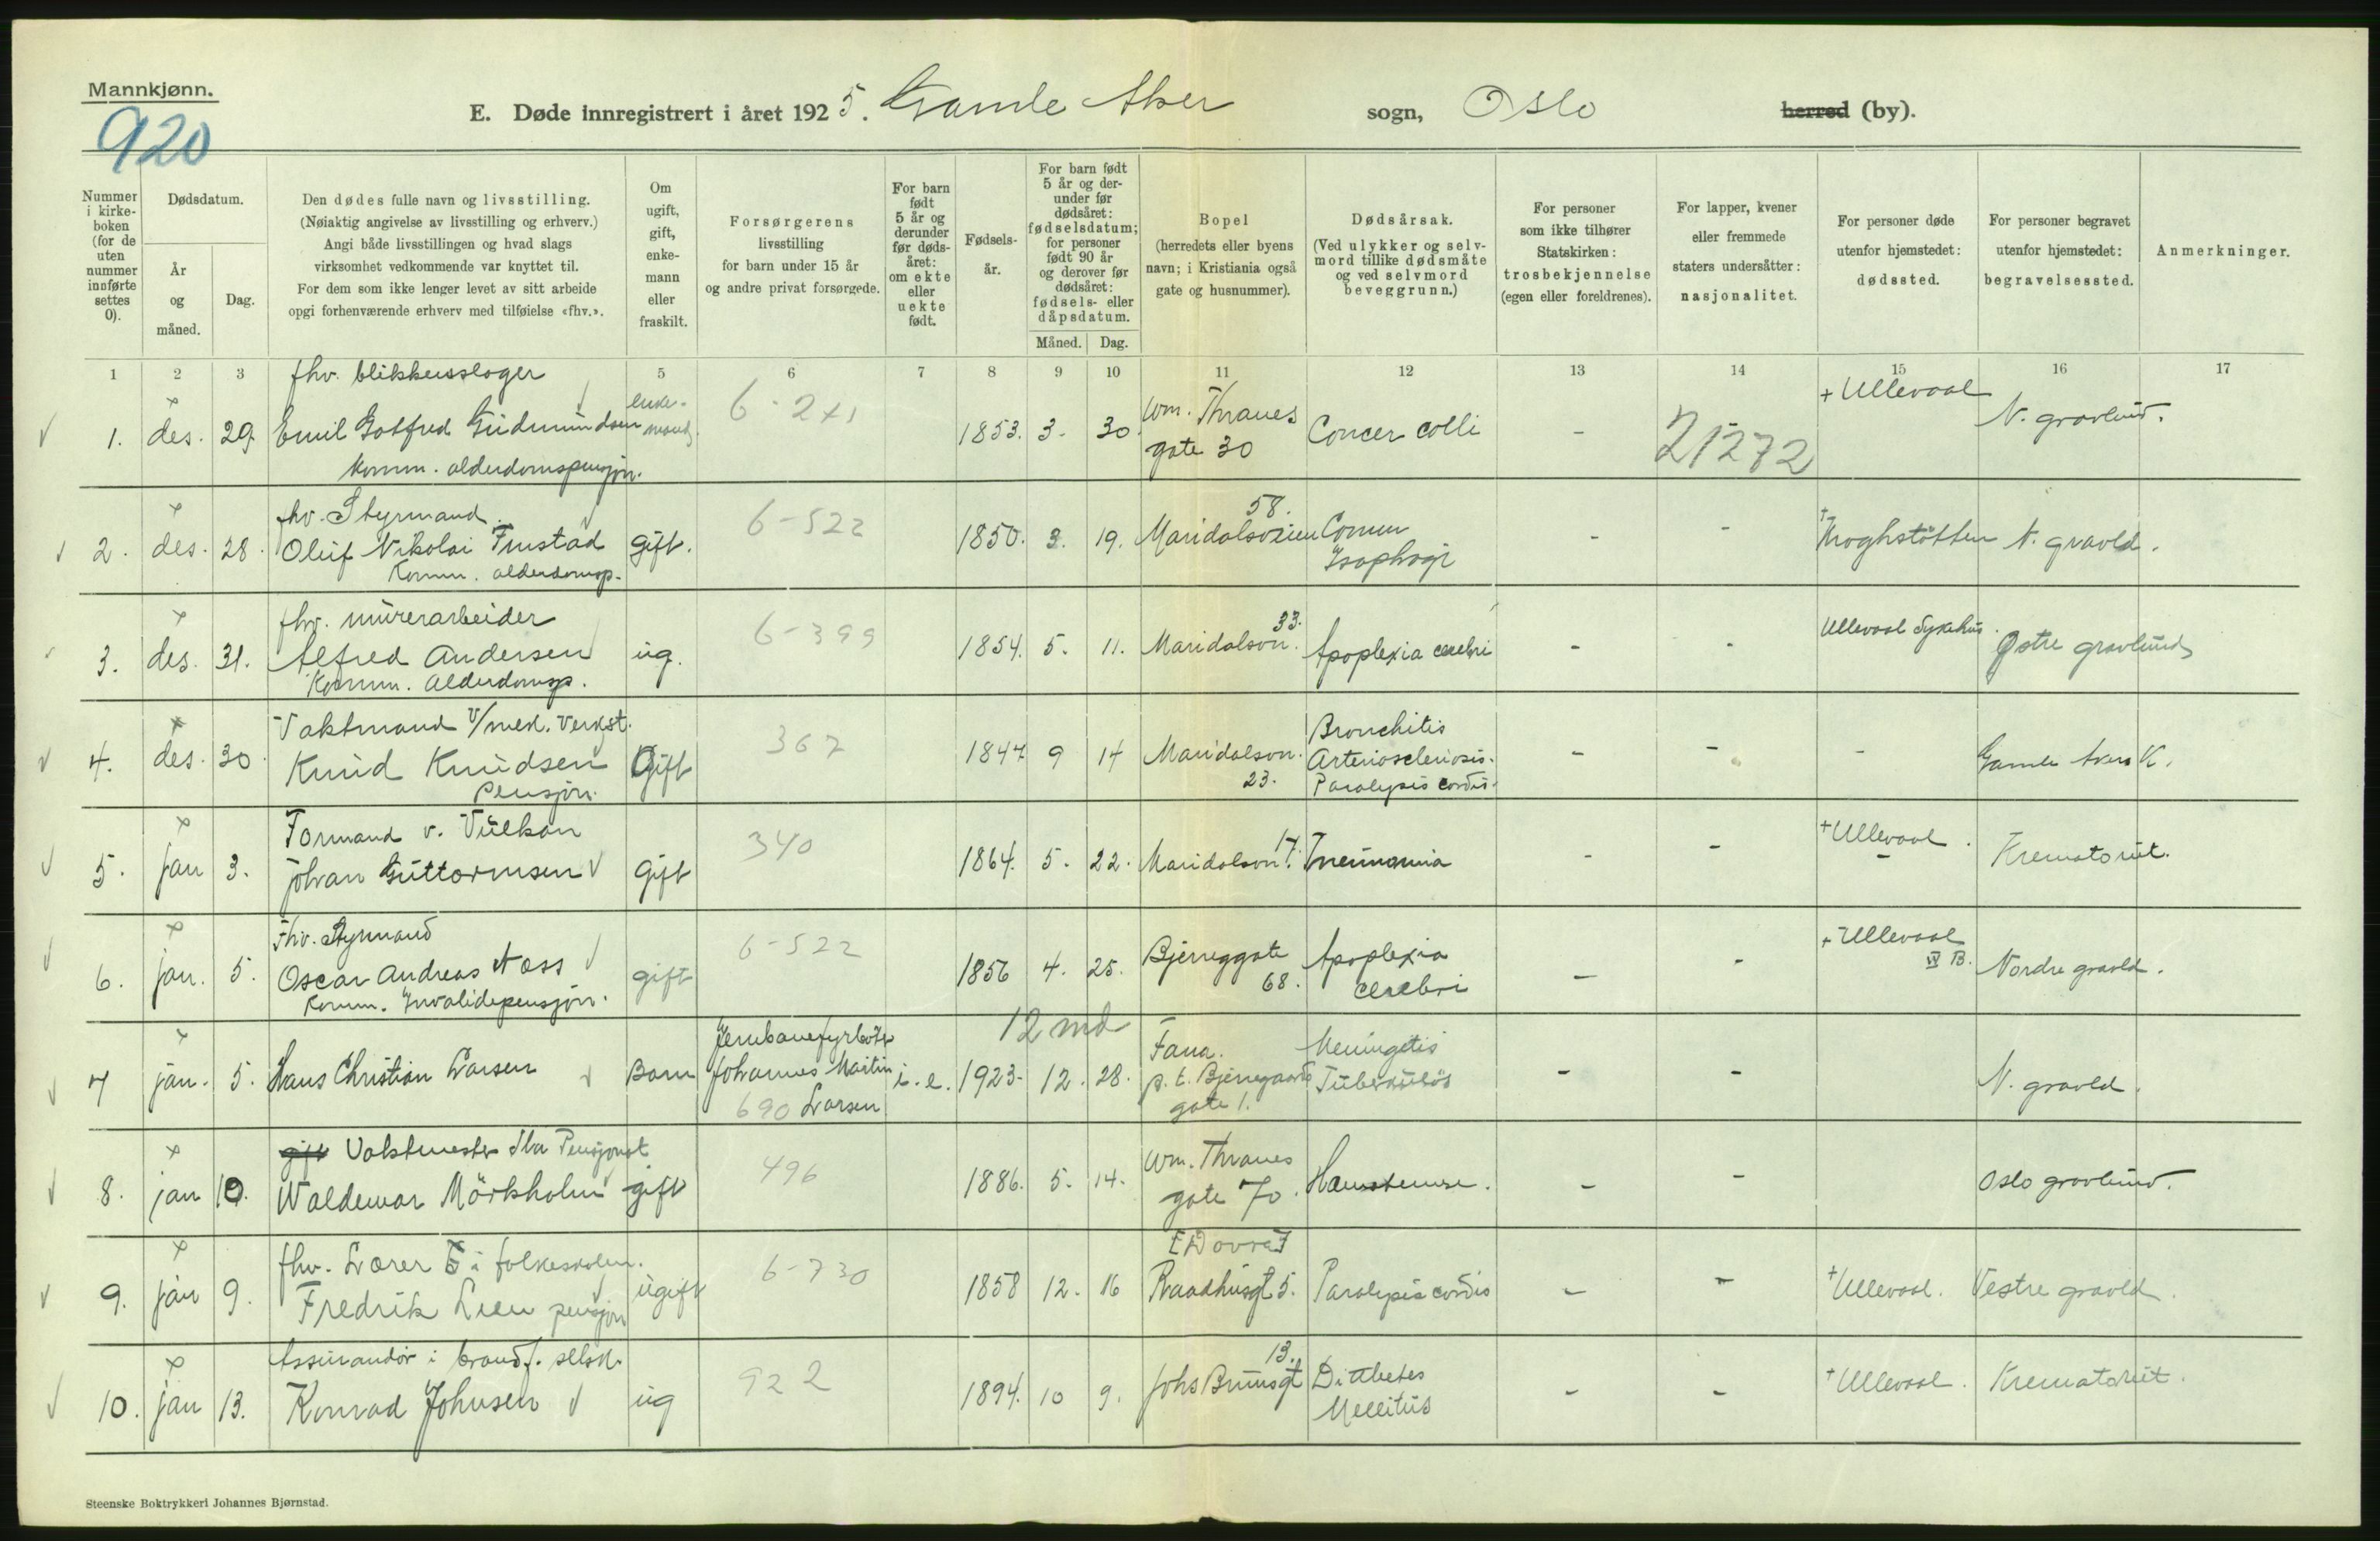 Mannkjønn.
920
E. Døde innregistrert i året 1925. Gamle Aker sogn, Oslo herred (by).
Nummer i kirkeboken (for de uten nummer innførte settes 0).
Dødsdatum.
År og måned.
Dag.
Den dødes fulle navn og livsstilling.
(Nøiaktig angivelse av livsstilling og erhverv.)
Angi både livsstillingen og hvad slags
virksomhet vedkommende var knyttet til.
For dem som ikke lenger levet av sitt arbeide
opgi forhenværende erhverv med tilføielse «fhv.».
Om ugift, gift, enkemann eller fraskilt.
Forsørgerens
livsstilling
for barn under 15 år
og andre privat forsørgede.
For barn født 5 år og derunder før dødsåret: om ekte eller uekte født.
Fødselsår.
For barn født 5 år og derunder før dødsåret: fødselsdatum; for personer født 90 år og derover før dødsåret: fødsels- eller dåpsdatum.
Måned. Dag.
Bopel
(herredets eller byens
navn; i Kristiania også
gate og husnummer).
Dødsårsak.
(Ved ulykker og selvmord tillike dødsmåte og ved selvmord beveggrunn.)
For personer
som ikke tilhører
Statskirken:
trosbekjennelse
(egen eller foreldrenes).
For lapper, kvener
eller fremmede
staters undersåtter:
nasjonalitet.
For personer døde
utenfor hjemstedet:
dødssted.
For personer begravet
utenfor hjemstedet:
begravelsessted.
Anmerkninger.
1 2 3 5 6 7 8 9 10 11 12 13 14 15 16 17
fhv. blikkenslager
1. des. 29. Emil Gotfred Gudmundsen enkemand. 1853. 3. 30. Wm. Thranes gate 30 Cancer colli - 21272 + Ullevaal N. gravlund.
Komm. alderdomspensjon.
fhv. Styrmand
2. des. 28. Oluf Nikolai Finstad gift. 6-522 1850. 3. 19. Maridalsveien 58. - - N. gravld.
Komm. alderdomsp.
fhv. murerarbeider
3. des. 31. Alfred Andersen ug. 6-399 1854. 5. 11. Maridalsvn. 33. Apoplexia cerebri - - Ullevaal Sykehus. Østre gravlund
Komm. Alderdomsp.
Vaktmand v/mek. verkst.
4. des. 30. Knud Knudsen Gift 367 1847 9 14 Maridalsvn. 23. Bronchitis Arteriosclerosis. Paralysis cordis. - - - Gamle Akers K.
Pensjon.
Formand v. Vulkan
5. jan 3. Johan Guttormsen Gift 340 1864. 5. 22. Maridalsvn. 17. Pneumonia - - + Ullevaal. Krematoriet.
Fhv. Styrmand
6. jan. 5. Oscar Andreas Næss gift 6-522 1856 4. 25. Bjerreggate 68. Apoplexia cerebri - - + Ullevaal Nordre gravld.
Komm. Invalidepensjon.
7 jan. 5. Hans Christian Larsen Barn Jernbanefyrbøter Johannes Martin Larsen 690 i. e. 12 md 1923. 12. 28. Fana. p. t. Bjerregaards gate 1. Meningitis Tuberkuløs - - N. gravld.
gift Vaktmester Pensjonist
8. jan 10. Waldemar Mörkholm gift 496 1886. 5. 14. Wm. Thranes gate 70. - - Oslo gravlund.
fhv. Lærer i folkeskolen.
9. jan 9. Fredrik Lien pensjon ugift 6-730 1858 12. 16 Raadhusgt 5. Paralysis cordis - - + Ullevaal. Vestre gravld.
Assurandør i brandf. selsk.
10. jan 13. Konrad Johnsen ug 922 1894. 10 9. Johs Brunsgt 13. Diabetes Mellitus - - + Ullevaal. Krematoriet.
Steenske Boktrykkeri Johannes Bjørnstad.